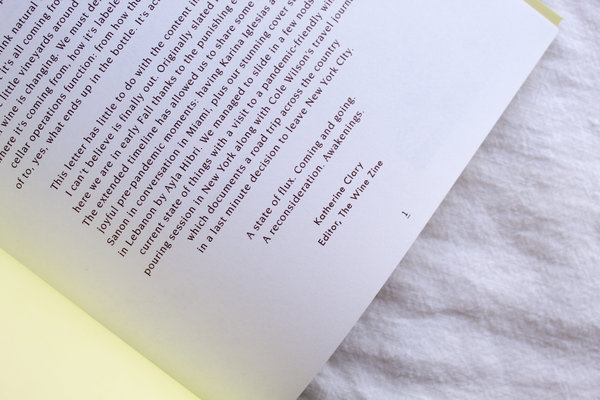 think natural
it's all coming from
little vineyards around
wine is changing. We must de
where it's coming from, how it's labele
cellar operations function: from how the
of to, yes, what ends up in the bottle. It's ac
This letter has little to do with the content i
I can't believe is finally out. Originally slated
here we are in early Fall thanks to the punishing e
The extended timeline has allowed us to share some
joyful pre-pandemic moments: having Karina Iglesias a
Sanon in conversation in Miami, plus our stunning cover s
in Lebanon by Ayla Hibri. We managed to slide in a few nods
current state of things with a visit to a pandemic-friendly win
pouring session in New York along with Cole Wilson's travel journ
which documents a road trip across the country
in a last minute decision to leave New York City.
A state of flux. Coming and going.
A reconsideration. Awakenings.
Katherine Clary
Editor, The Wine Zine
1